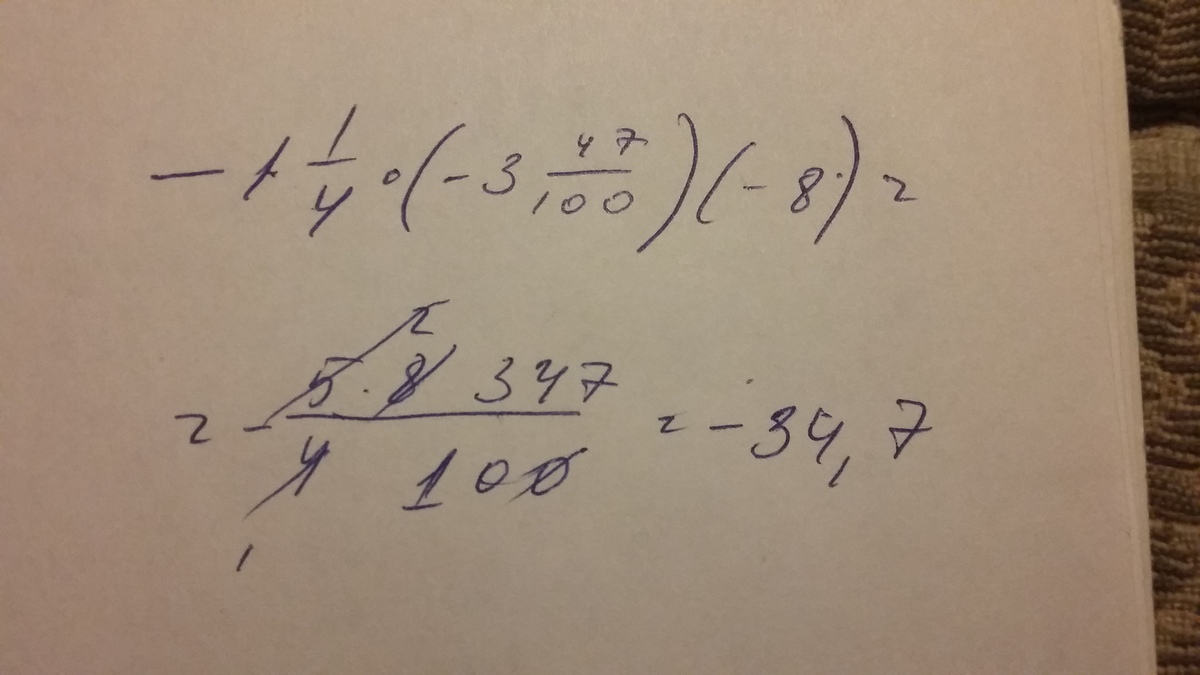 - 1 1/4 · (- 3 47/100) (- 8) =
= - 5 · 8 347 / 4 100 = - 34,7
2
1